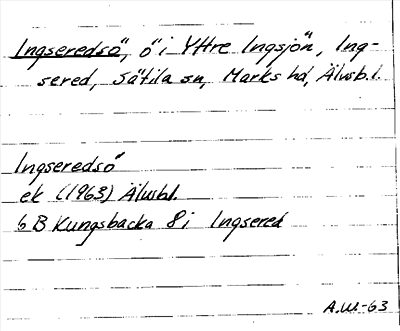 Ingseredsö, ö i Yttre Ingsjön, Ing-
sered, Sätila sn, Marks hd, Älvsb.l.
Ingseredsö
ek (1963) Älvsbl.
6 B Kungsbacka 8 i Ingsered
A.W-63